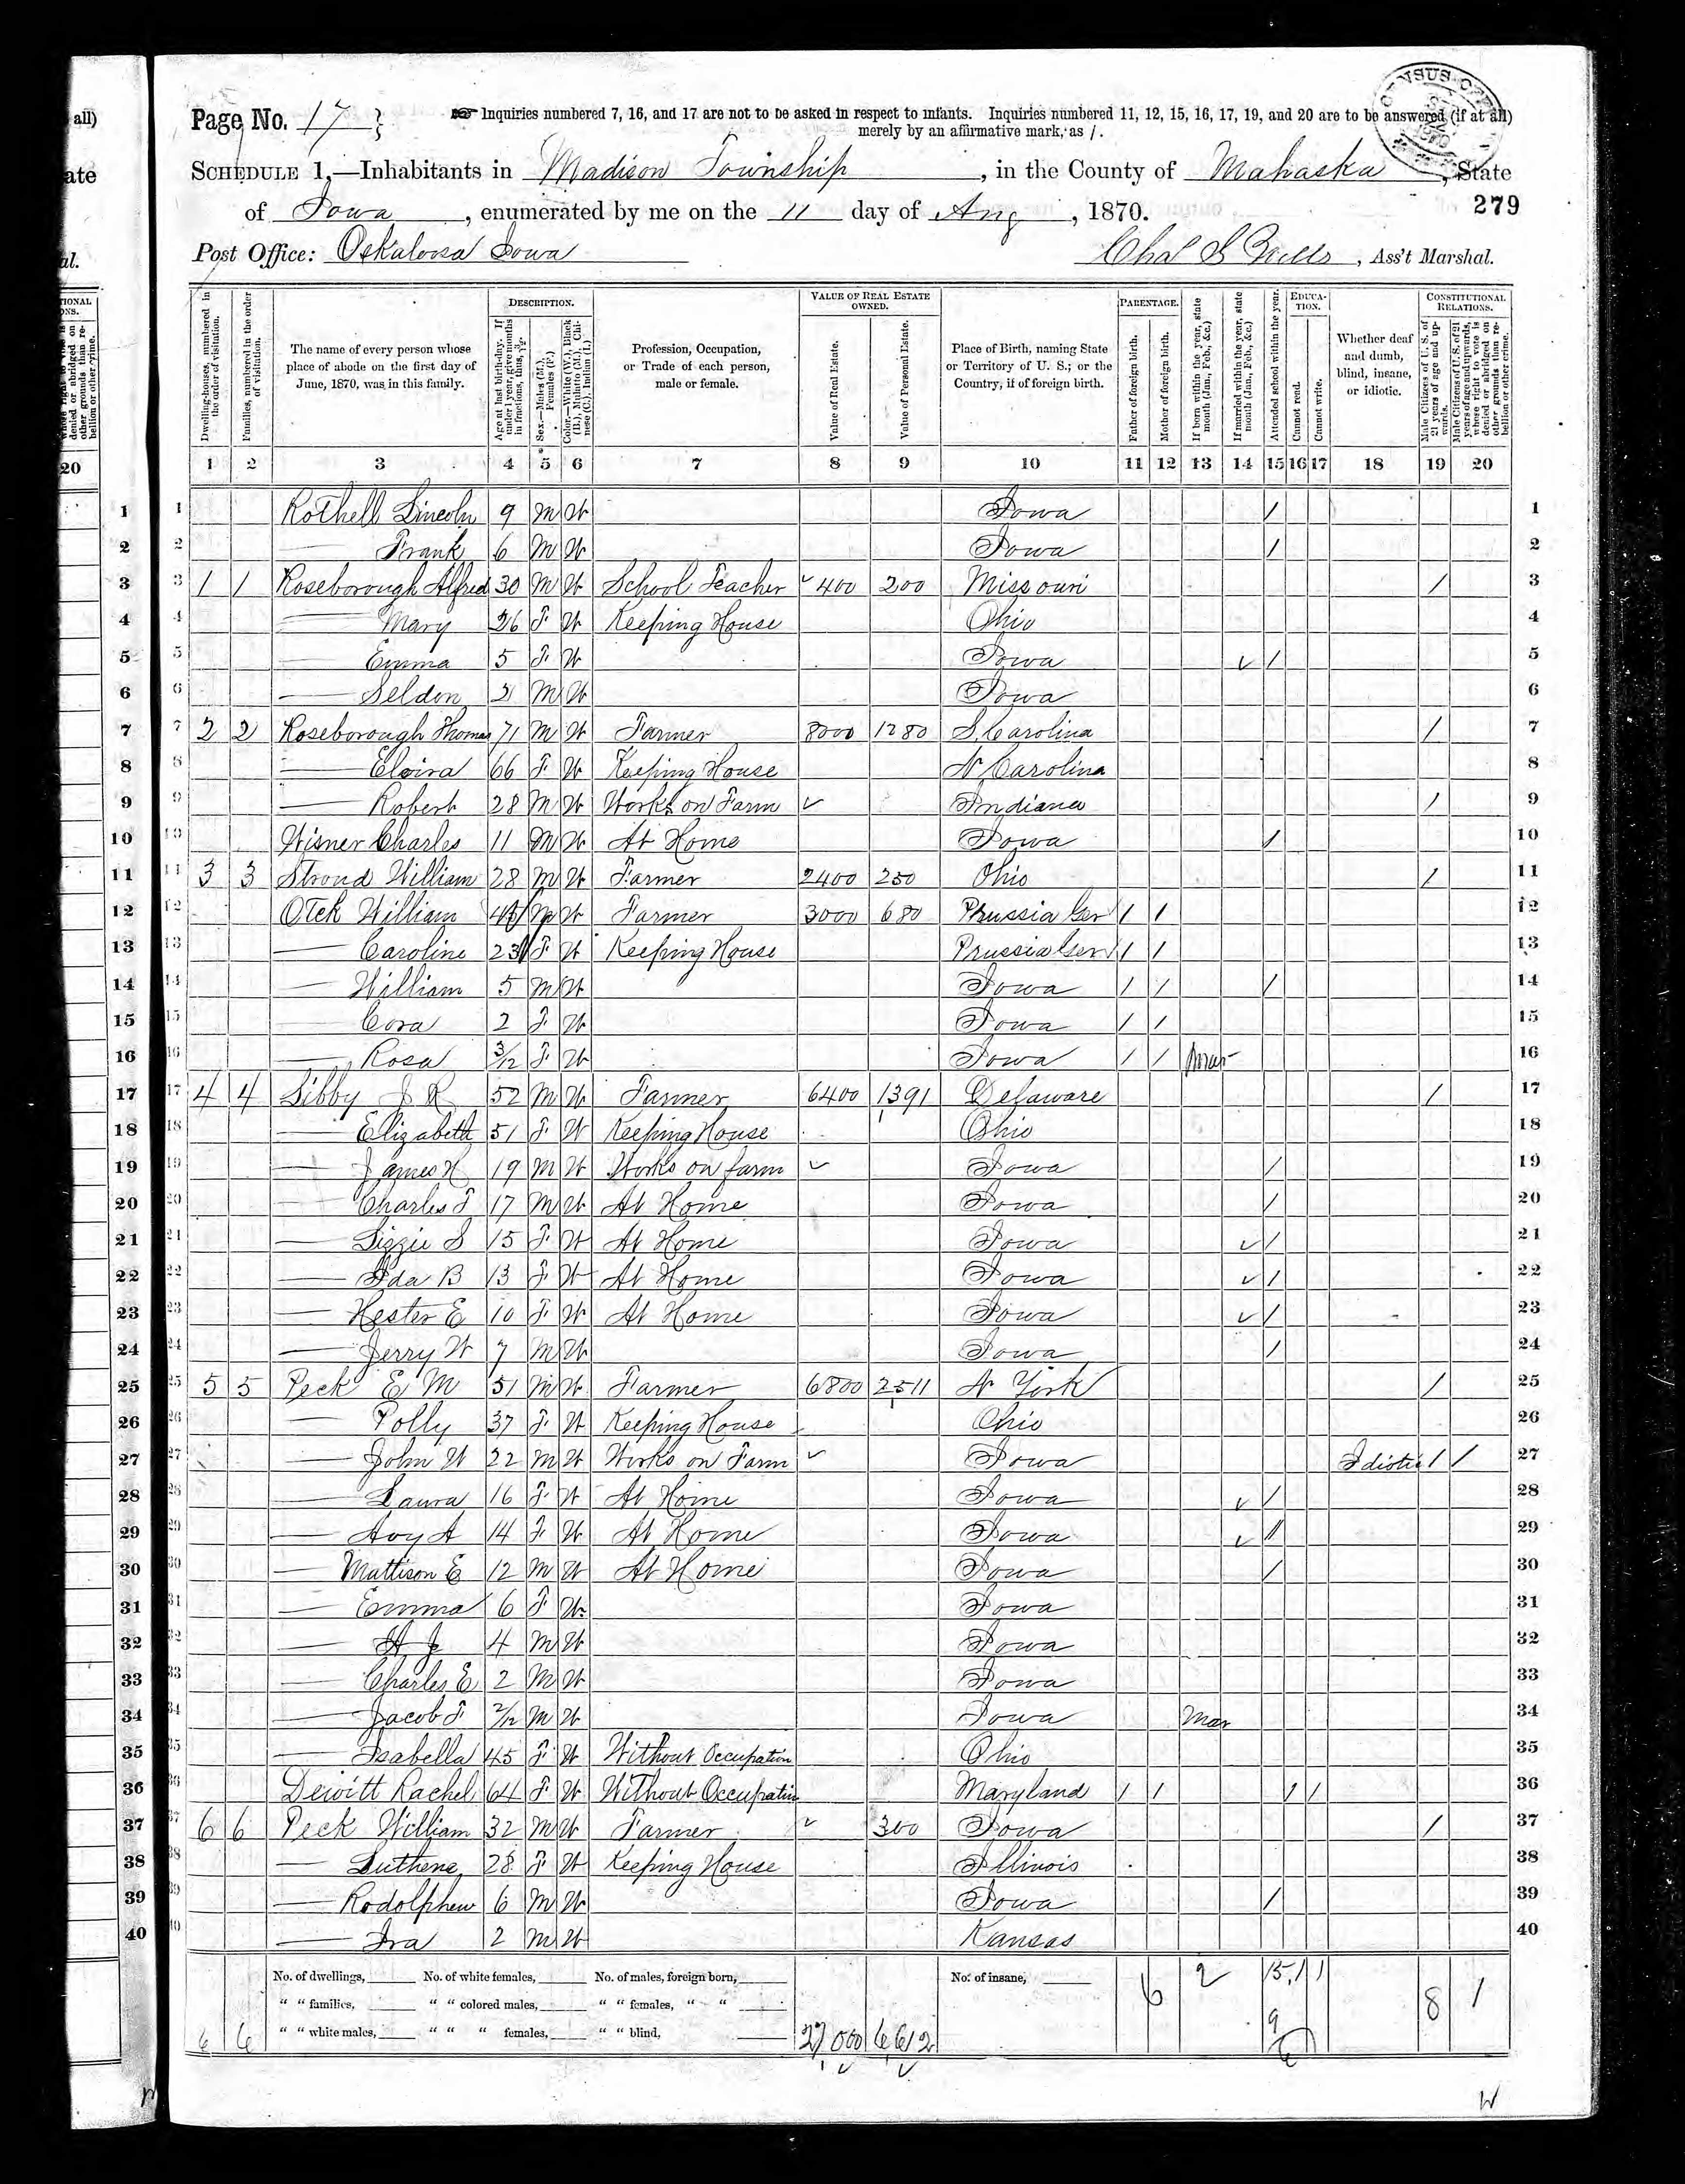 all)
ate
al.
20
CENSUS OFF
Page No. 17 }
☞ Inquiries numbered 7, 16, and 17 are not to be asked in respect to infants. Inquiries numbered 11, 12, 15, 16, 17, 19, and 20 are to be answered (if at all)
merely by an affirmative mark, as /.
SCHEDULE 1.—Inhabitants in Madison Township, in the County of Mahaska, State
of Iowa, enumerated by me on the 11 day of Aug, 1870.
279
Post Office: Oskaloosa Iowa
, Ass't Marshal.
Dwelling-houses, numbered in the order of visitation.
Families, numbered in the order of visitation.
The name of every person whose place of abode on the first day of June, 1870, was in this family.
DESCRIPTION.
Age at last birth-day. If under 1 year, give months in fractions, thus, 3/12.
Sex.—Males (M.), Females (F.)
Color.—White (W.), Black (B.), Mulatto (M.), Chinese (C.), Indian (I.)
Profession, Occupation, or Trade of each person, male or female.
VALUE OF REAL ESTATE OWNED.
Value of Real Estate.
Value of Personal Estate.
Place of Birth, naming State or Territory of U. S.; or the Country, if of foreign birth.
PARENTAGE.
Father of foreign birth.
Mother of foreign birth.
If born within the year, state month (Jan., Feb., &c.)
If married within the year, state month (Jan., Feb., &c.)
Attended school within the year.
EDUCATION.
Cannot read.
Cannot write.
Whether deaf and dumb, blind, insane, or idiotic.
CONSTITUTIONAL RELATIONS.
Male Citizens of U. S. of 21 years of age and upwards.
Male Citizens of U. S. of 21 years of age and upwards, whose right to vote is denied or abridged on other grounds than rebellion or other crime.
1 2 3 4 5 6 7 8 9 10 11 12 13 14 15 16 17 18 19 20
1 Rothell Lincoln 9 M W Iowa / 1
2 — Frank 6 M W Iowa / 2
3 1 1 Roseborough Alfred 30 M W School Teacher ✓ 400 200 Missouri / 3
4 — Mary 26 F W Keeping House Ohio 4
5 — Emma 5 F W Iowa ✓ / 5
6 — Seldon M W Iowa 6
7 2 2 Roseborough Thomas 71 M W Farmer 8000 1280 S. Carolina / 7
8 — Elvira 66 F W Keeping House N Carolina 8
9 — Robert 28 M W Works on Farm ✓ Indiana / 9
10 Wisner Charles 11 M W At Home Iowa / 10
11 3 3 Stroud William 28 M W Farmer 2400 250 Ohio / 11
12 Otek William M W Farmer 3000 680 Prussia Ger / / 12
13 — Caroline 23 F W Keeping House Prussia Ger / / 13
14 — William 5 M W Iowa / / / 14
15 — Cora 2 F W Iowa / / 15
16 — Rosa 3/12 F W Iowa / / Mar 16
17 4 4 Libby J R 52 M W Farmer 6400 1391 Delaware / 17
18 — Elizabeth 51 F W Keeping House Ohio 18
19 — James H 19 M W Works on farm ✓ Iowa / 19
20 — Charles F 17 M W At Home Iowa / 20
21 — Lizzie S 15 F W At Home Iowa ✓ / 21
22 — Ida B 13 F W At Home Iowa ✓ / 22
23 — Hester E 10 F W At Home Iowa ✓ / 23
24 — Jerry W 7 M W Iowa / 24
25 5 5 Peck E M 51 M W Farmer 6800 2511 N York / 25
26 — Polly 37 F W Keeping House Ohio 26
27 — John W 22 M W Works on Farm ✓ Iowa Idiotic / / 27
28 — Laura 16 F W At Home Iowa ✓ / 28
29 — Avy A 14 F W At Home Iowa ✓ // 29
30 — Mattison E 12 M W At Home Iowa / 30
31 — Emma 6 F W Iowa 31
32 — H J 4 M W Iowa 32
33 — Charles E 2 M W Iowa 33
34 — Jacob F M W Iowa Mar 34
35 — Isabella 45 F W Without Occupation Ohio 35
36 Dewitt Rachel 64 F W Without Occupation Maryland / / / / 36
37 6 6 Peck William 32 M W Farmer ✓ 300 Iowa / 37
38 — Luthene 28 F W Keeping House Illinois 38
39 — Rodolphew 6 M W Iowa / 39
40 — Ira 2 M W Kansas 40
No. of dwellings, No. of white females, No. of males, foreign born, No. of insane, 6 2 15 / / 8 1
" " families, " " colored males, " " females, " "
6 6 " " white males, " " " females, " " blind, 27000 6612 9
W